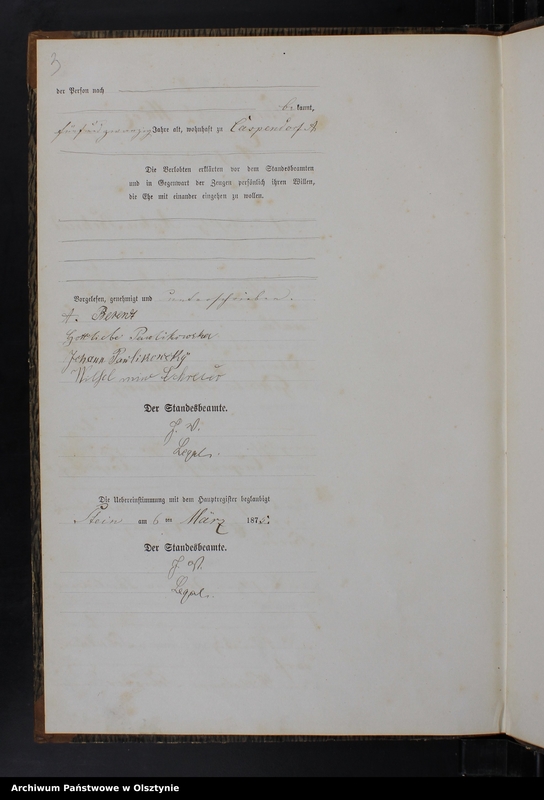 3
der Person nach
be kannt,
fünfundzwanzig Jahre alt, wohnhaft zu Caspendorf
Die Verlobten erklärten vor dem Standesbeamten
und in Gegenwart der Zeugen persönlich ihren Willen,
die Ehe mit einander eingehen zu wollen.
Vorgelesen, genehmigt und unterschrieben.
A. Berent
Gottliebe Pawlikowska
Johann Pawlikowsky
Der Standesbeamte.
J. V.
Die Uebereinstimmung mit dem Hauptregister beglaubigt
Stein am 6 ten März 187
Der Standesbeamte.
J. V.
Archiwum Państwowe w Olsztynie